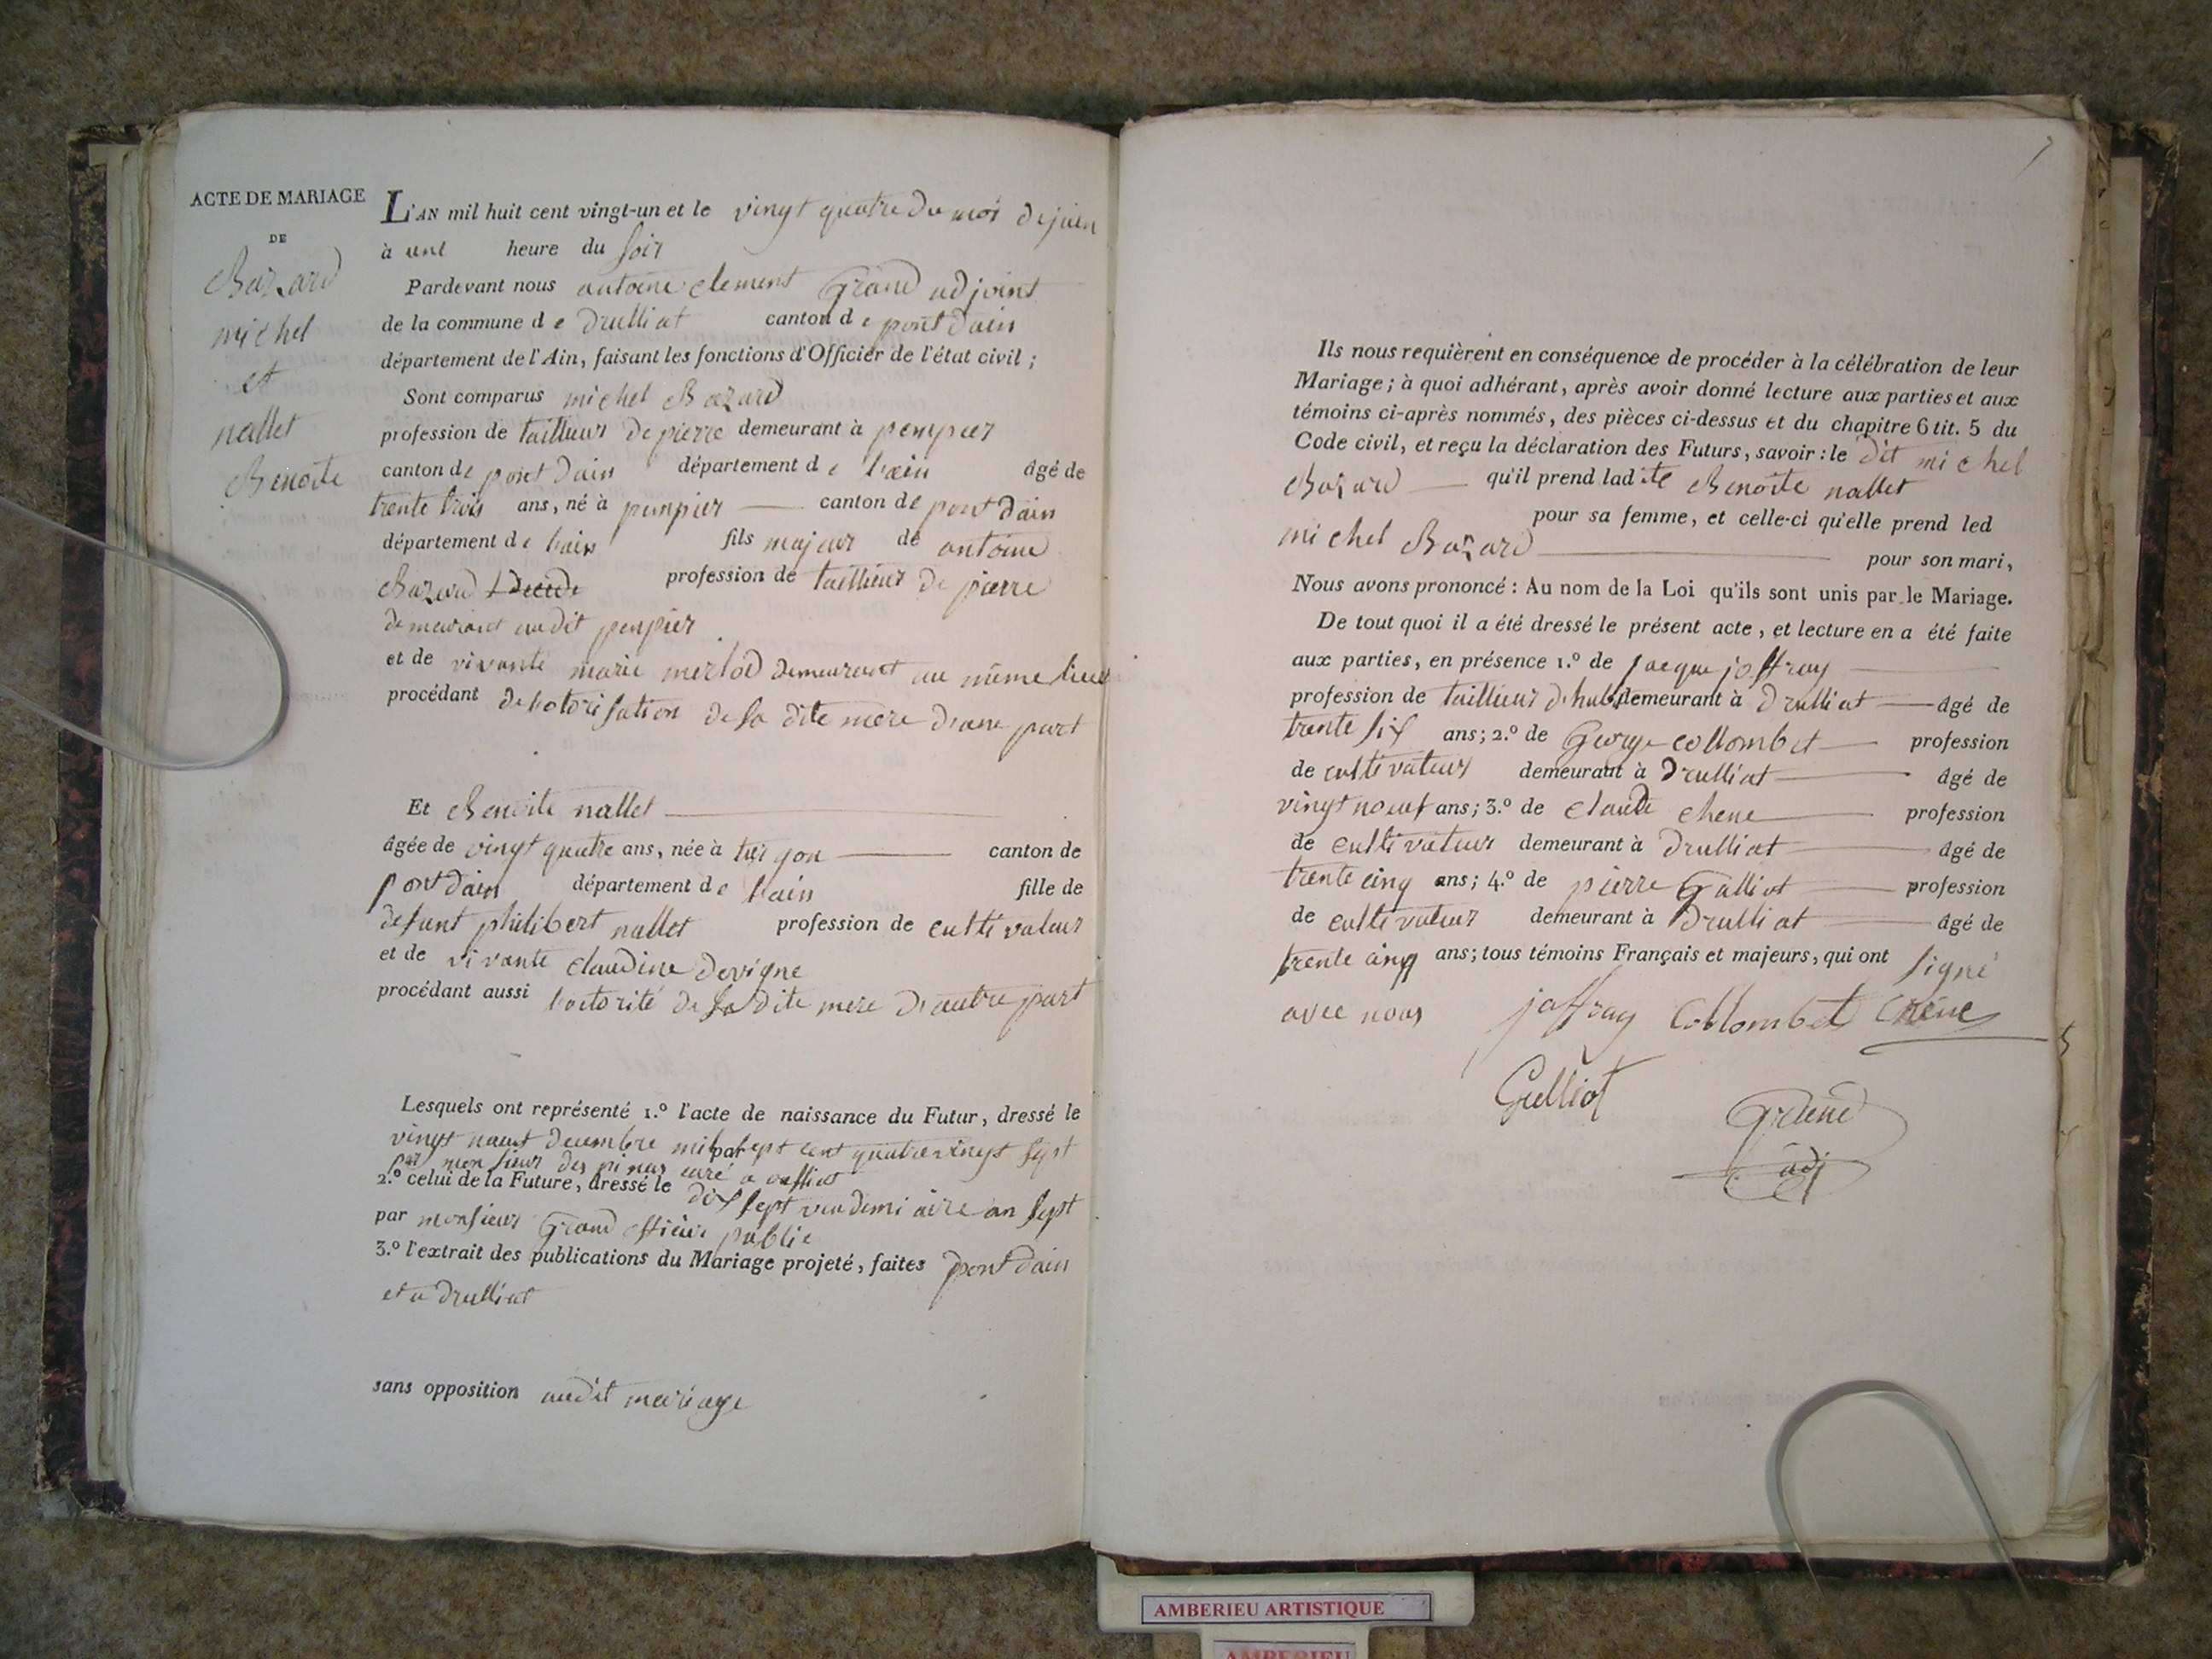 ACTE DE MARIAGE
DE
Bazard
michel
et
nallet
Benoite
L'AN mil huit cent vingt-un et le vingt quatre du moi de juin
à une heure du soir
Pardevant nous antoine clement Grand adjoint
de la commune de Drulliat canton de pont dain
département de l'Ain, faisant les fonctions d'Officier de l'état civil ;
Sont comparus michel Bazard
profession de taillieur de pierre demeurant à penpier
canton de pont dain département de lain âgé de
trente trois ans, né à penpier canton de pont dain
département de lain fils majeur de antoine
Bazard profession de taillieur de pierre
demeurant audit penpier
et de vivante marie merlod demeurant au même lieu
procédant de lotorisation de sa dite mère d'une part
Et Benoite nallet
âgée de vingt quatre ans, née à turgon canton de
pont dain département de lain fille de
defunt philibert nallet profession de cultivateur
et de vivante claudine devigne
procédant aussi loctorité de sa dite mere d'autre part
Lesquels ont représenté 1.º l'acte de naissance du Futur, dressé le
vingt neuf decembre mil sept cent quatre vingt sept
par monsieur des curé a
2.º celui de la Future, dressé le dix sept vendemiaire an sept
par monsieur Grand officier public
3.º l'extrait des publications du Mariage projeté, faites pont dain
et a Drulliat
sans opposition audit mariage
7
Ils nous requièrent en conséquence de procéder à la célébration de leur
Mariage ; à quoi adhérant, après avoir donné lecture aux parties et aux
témoins ci-après nommés, des pièces ci-dessus et du chapitre 6 tit. 5 du
Code civil, et reçu la déclaration des Futurs, savoir : le dit michel
Bazard qu'il prend ladite Benoite nallet
pour sa femme, et celle-ci qu'elle prend led
michel Bazard pour son mari,
Nous avons prononcé : Au nom de la Loi qu'ils sont unis par le Mariage.
De tout quoi il a été dressé le présent acte, et lecture en a été faite
aux parties, en présence 1.º de jacque joffray
profession de taillieur d'habs demeurant à Drulliat âgé de
trente six ans ; 2.º de George collombet profession
de cultivateur demeurant à Drulliat âgé de
vingt noeuf ans ; 3.º de claude chene profession
de cultivateur demeurant à Drulliat âgé de
trente cinq ans ; 4.º de pierre Galliot profession
de cultivateur demeurant à Drulliat âgé de
trente cinq ans ; tous témoins Français et majeurs, qui ont signé
avec nous joffray Collombet Chêne
Gulliot Grand
adj
AMBERIEU ARTISTIQUE
AMBERIEU